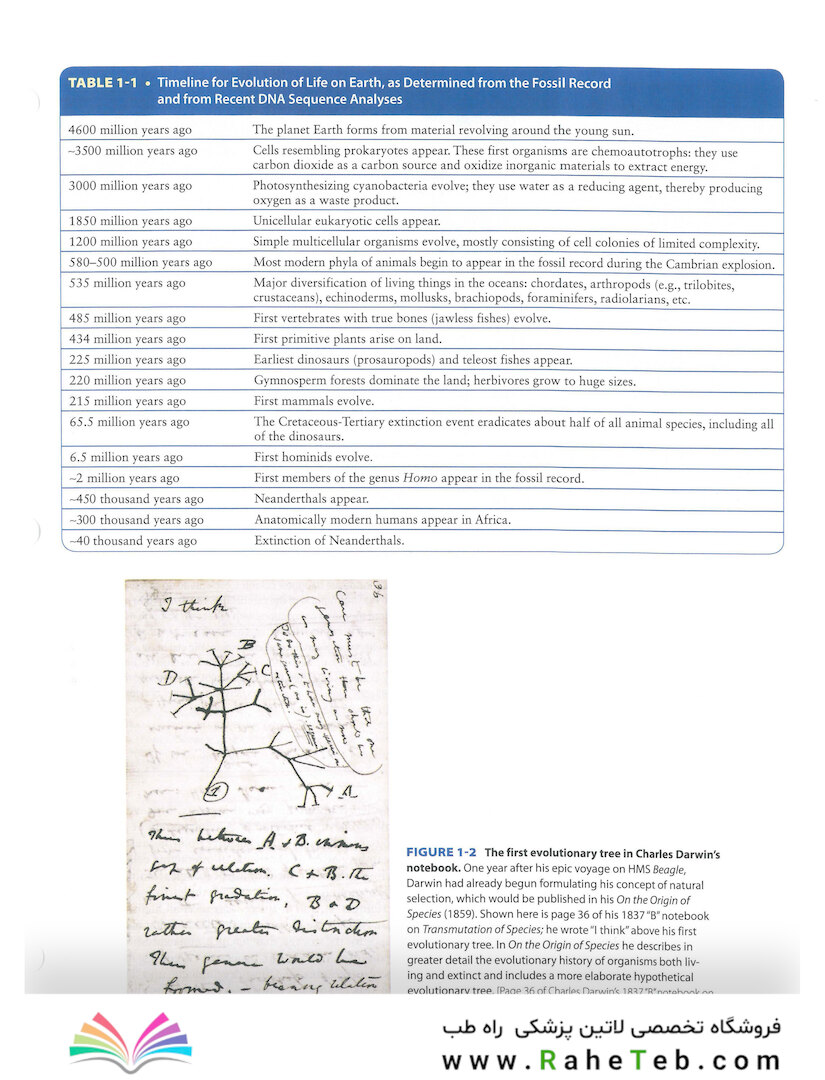 TABLE 1-1 • Timeline for Evolution of Life on Earth, as Determined from the Fossil Record
and from Recent DNA Sequence Analyses
4600 million years ago The planet Earth forms from material revolving around the young sun.
~3500 million years ago Cells resembling prokaryotes appear. These first organisms are chemoautotrophs: they use
carbon dioxide as a carbon source and oxidize inorganic materials to extract energy.
3000 million years ago Photosynthesizing cyanobacteria evolve; they use water as a reducing agent, thereby producing
oxygen as a waste product.
1850 million years ago Unicellular eukaryotic cells appear.
1200 million years ago Simple multicellular organisms evolve, mostly consisting of cell colonies of limited complexity.
580–500 million years ago Most modern phyla of animals begin to appear in the fossil record during the Cambrian explosion.
535 million years ago Major diversification of living things in the oceans: chordates, arthropods (e.g., trilobites,
crustaceans), echinoderms, mollusks, brachiopods, foraminifers, radiolarians, etc.
485 million years ago First vertebrates with true bones (jawless fishes) evolve.
434 million years ago First primitive plants arise on land.
225 million years ago Earliest dinosaurs (prosauropods) and teleost fishes appear.
220 million years ago Gymnosperm forests dominate the land; herbivores grow to huge sizes.
215 million years ago First mammals evolve.
65.5 million years ago The Cretaceous-Tertiary extinction event eradicates about half of all animal species, including all
of the dinosaurs.
6.5 million years ago First hominids evolve.
~2 million years ago First members of the genus Homo appear in the fossil record.
~450 thousand years ago Neanderthals appear.
~300 thousand years ago Anatomically modern humans appear in Africa.
~40 thousand years ago Extinction of Neanderthals.
36
I think
B
C
D
1
A
Thus between A & B. immense
gap of relation. C & B. the
finest gradation, B & D
rather greater distinction
Thus genera would be
formed. — bearing relation
FIGURE 1-2 The first evolutionary tree in Charles Darwin's
notebook. One year after his epic voyage on HMS Beagle,
Darwin had already begun formulating his concept of natural
selection, which would be published in his On the Origin of
Species (1859). Shown here is page 36 of his 1837 "B" notebook
on Transmutation of Species; he wrote "I think" above his first
evolutionary tree. In On the Origin of Species he describes in
greater detail the evolutionary history of organisms both liv-
ing and extinct and includes a more elaborate hypothetical
evolutionary tree. [Page 36 of Charles Darwin's 1837 "B" notebook on
فروشگاه تخصصی لاتین پزشکی راه طب
www.RaheTeb.com